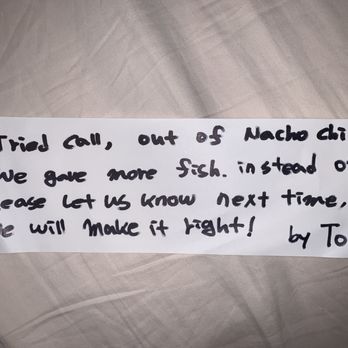 Tried call, out of Nacho chi
We gave more fish. instead o
ease let us know next time,
e will make it right! by To